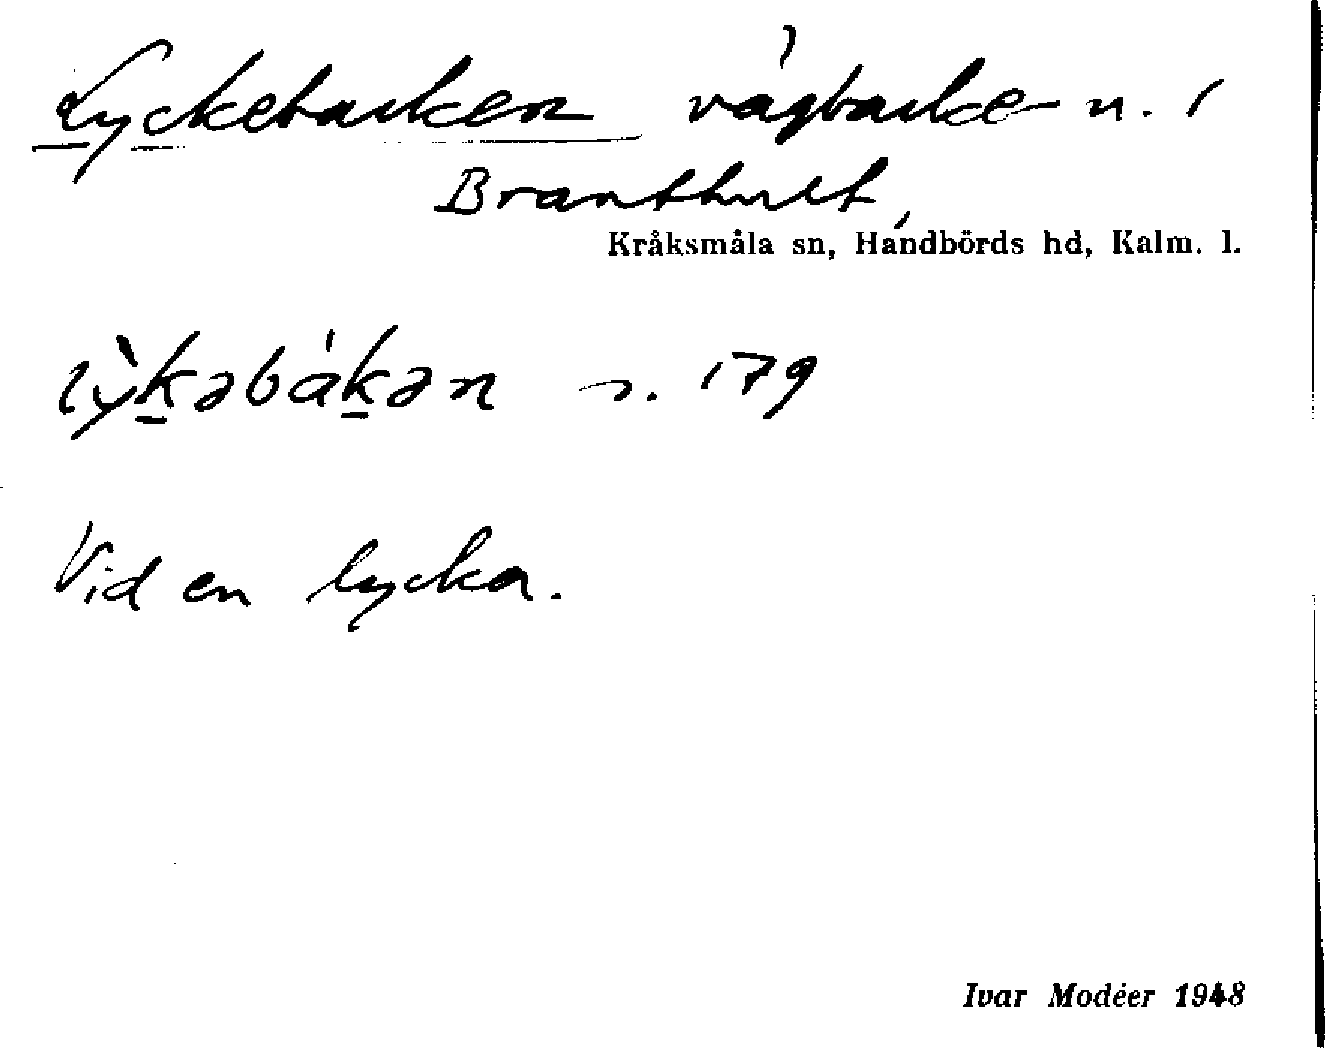 Lyckebacken vägbacke n. i
Branthult,
Kråksmåla sn, Handbörds hd, Kalm. l.
lỳk̠əbák̠ən n. 179
Vid en lycka.
Ivar Modéer 1948